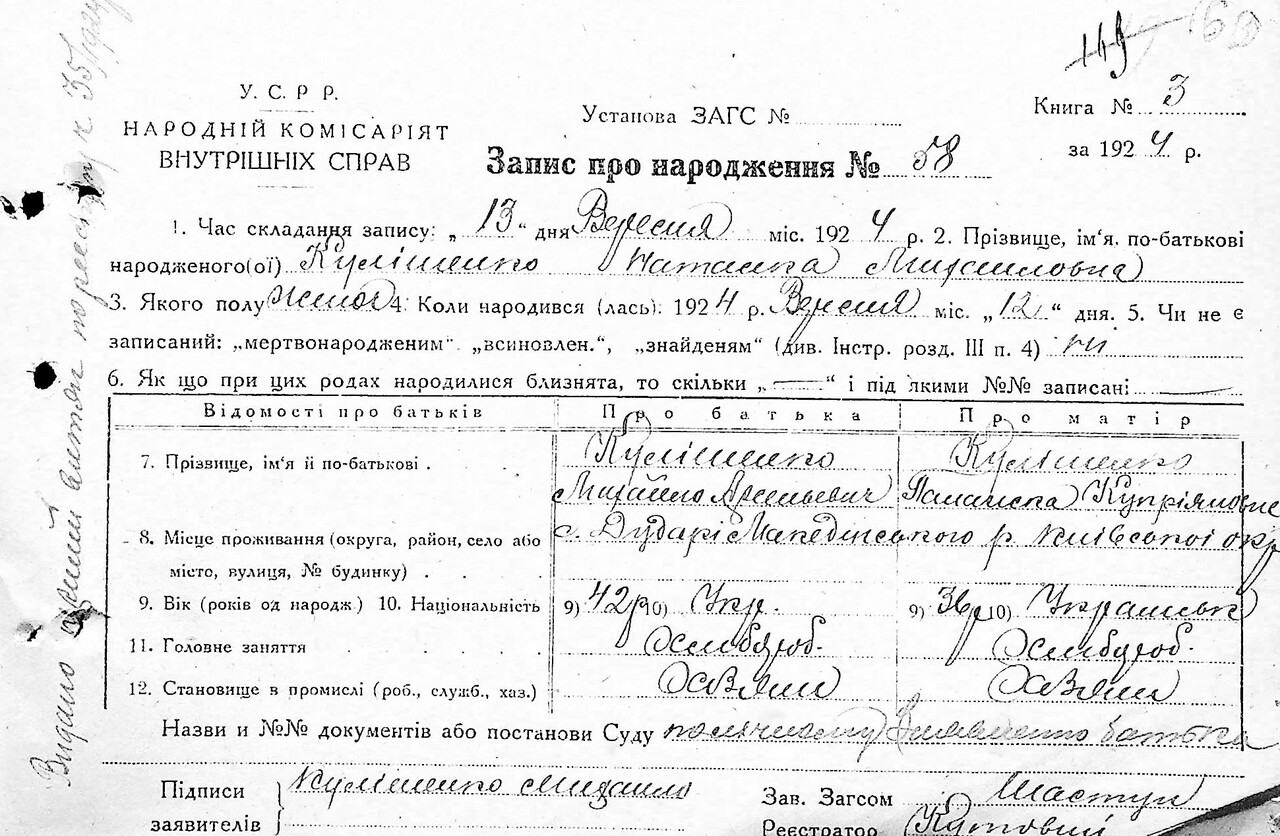 149 168
У. С. Р. Р.
НАРОДНІЙ КОМІСАРІЯТ
ВНУТРІШНІХ СПРАВ
Установа ЗАГС №
Книга № 3
за 1924 р.
Запис про народження № 58
1. Час складання запису: „ 13 “ дня Вересня міс. 1924 р. 2. Прізвище, ім'я, по-батькові
народженого(ої) Кулішенко Наталка Михайловна
3. Якого полу жіноч 4. Коли народився (лась): 1924 р. Вересня міс. „ 12 “ дня. 5. Чи не є
записаний: „мертвонародженим“ „всиновлен.“, „знайденям“ (див. Інстр. розд. III п. 4) ні
6. Як що при цих родах народилися близнята, то скільки „ — “ і під якими №№ записані —
Відомості про батьків Про батька Про матір
7. Прізвище, ім'я й по-батькові . Кулішенко Кулішенко
Михайло Купріяновна
8. Місце проживання (округа, район, село або с. Дударі Македінського р Київської окр
місто, вулиця, № будинку) . .
9. Вік (років од народж.) 10. Національність 9) 42р 10) Укр. 9) 36р 10)
11. Головне заняття . . . . . Хлібороб. Хлібороб.
12. Становище в промислі (роб., служб., хаз.) Хазяїн Хазяїн
Назви и №№ документів або постанови Суду батька
Підписи Кулішенко Михайло Зав. Загсом Шастун
заявителів Реєстратор Кутовий
Видано